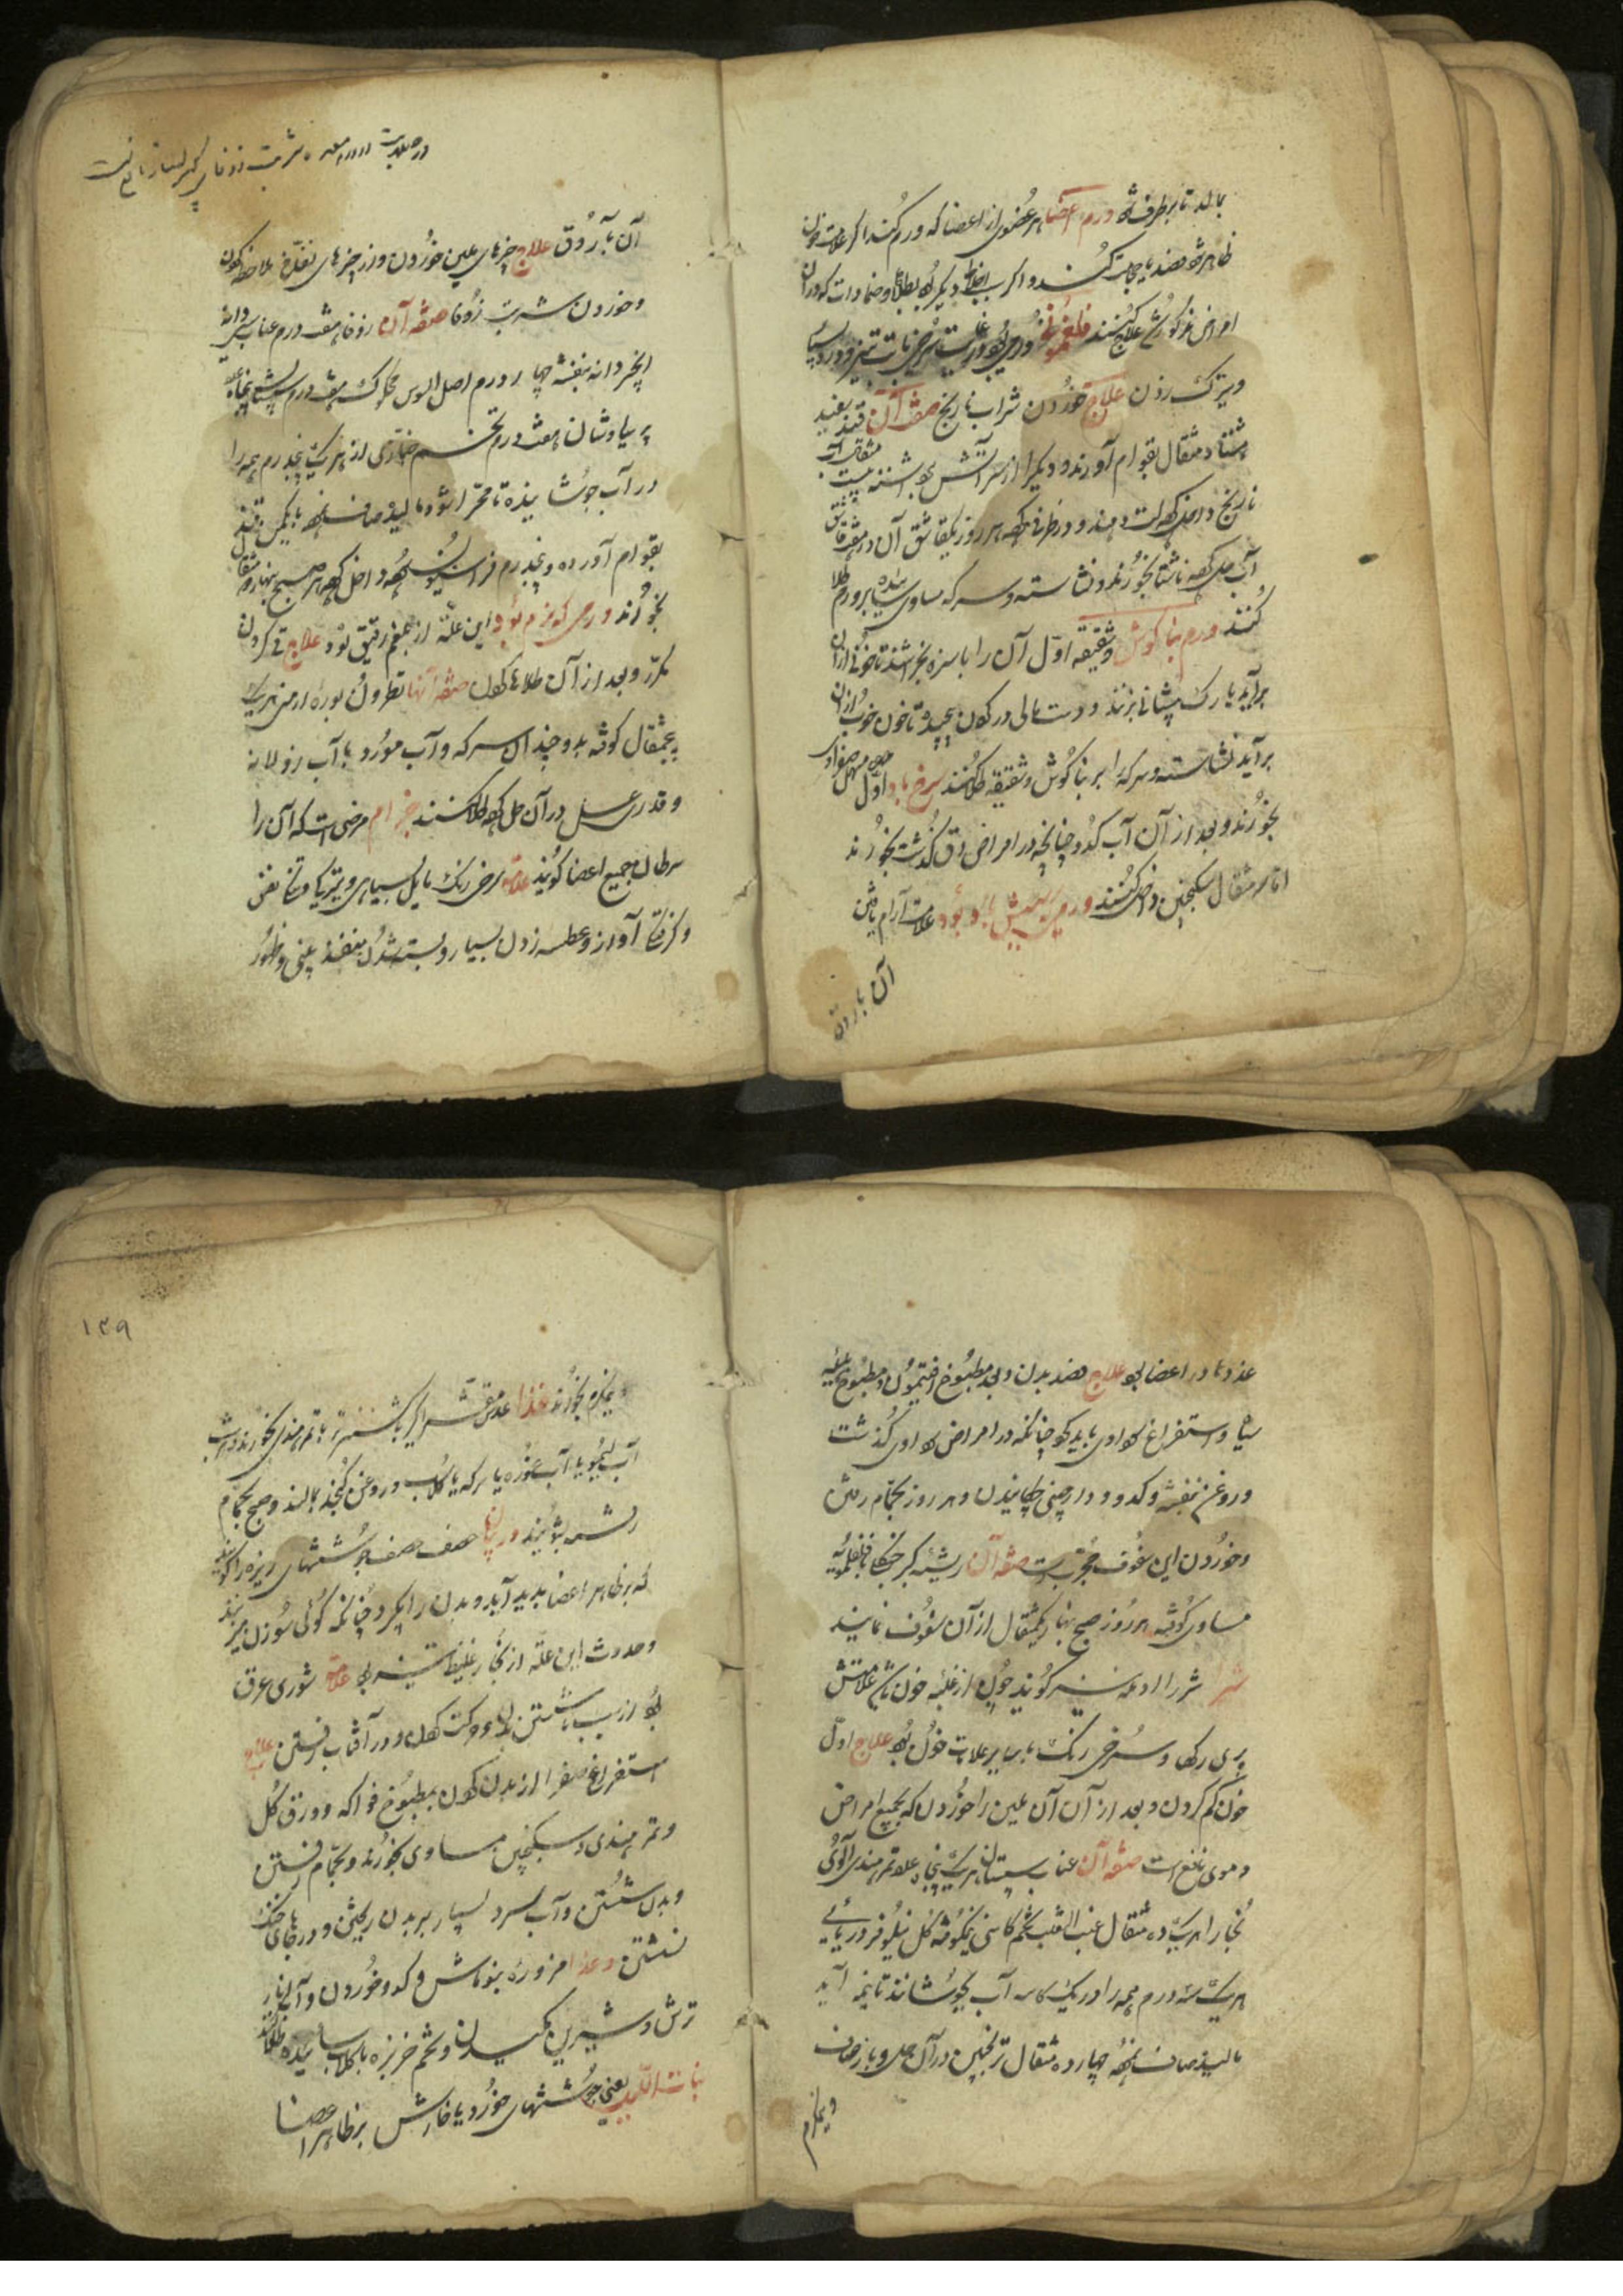 بمالد تا برطرف شود ورم اعضا هر عضوی از اعضا که ورم کند اگر علامت خون
ظاهر شود فصد یا حجامت کنند و اگر سبب اخلاط دیگر بود بطلاها و ضمادات که در آن
امراض مذکور شد علاج کنند فلغمونی ورمی بود در غایت سرخی با تب تیز و درد بسیار
و بترک زدن علاج خوردن شراب نارنج صفه آن قند سفید
هشتاد مثقال بقوام آورند و دیگر از سر آتش برداشته بیست مثقال آب
نارنج داخل کرده لت دهند و در ظرفی کرده هر روز یکقاشق آن در
آب حل کرده ناشتا بخورند و نشاسته و سرکه مساوی سائیده بر ورم طلا
کنند ورم بناگوش و شقیقه اول آن را با سبزه بخراشند تا خونی از آن
برآید یا رگ پیشانی بزنند و دستمالی در گردن پیچیده تا خون خوب از آن
برآید نشاسته و سرکه را بر بناگوش و شقیقه طلا کنند سرخ باد اول مسهل صفراوی
بخورند و بعد از آن آب کدو چنانچه در امراض دق گذشت بخورند
اما سه مثقال سکنجبین داخل کنند ورمی که سببش باد بود علامت آرام یافتن
آن باروق
در صلابت و ورم معده شربت زوفای کبیر بسیار نافع است
آن بآروق علاج چیزهای ملین خوردن و از چیزهای نفاخ ملاحظه کردن
و خوردن شربت زوفا صفه آن زوفا هفت درم عناب سی دانه
انجیر ده دانه بنفشه چهار درم اصل السوس محکوک هفت درم سپستان پنجاه عدد
پرسیاوشان هفت درم تخم خبازی از هر یک پنجدرم همه را
در آب جوشانیده تا مهرا شود مالیده صاف نموده با یکمن قند
بقوام آورده و پنجدرم فراسیون کرده داخل کرده هر صبح بنهار ده مثقال
بخورند ورمی که نرم بود این علة از بلغم رقیق بود علاج قی کردن
مکرر و بعد از آن طلاها کردن صفه آنها نطرون بوره ارمنی هر یک
پنجمثقال کوفته بدو چندان سرکه و آب مورد یا آب رزلانه
و قدری عسل در آن حل کرده طلا کنند جذام مرضی است که آن را
سرطان جمیع اعضا گویند علامة سرخی رنگ مایل بسیاهی و تیرگی و تنگی نفس
و گرفتگی آواز و عطسه زدن بسیار و بسته شدن منفذ بینی و ظهور
غدودها در اعضا بود علاج فصد بدن و بعد مطبوخ افتیمون و مطبوخ هلیله
سیاه و استفراغ سوداوی باید کرد چنانکه در امراض سوداوی گذشت
و روغن بنفشه و کدو و دارچینی چکانیدن و هر روز بحمام رفتن
و خوردن این سفوف مجربست صفه آن ریشه کبر خشک با فلفلمویه
مساوی کوفته هر روز صبح بنهار یکمثقال از آن سفوف نمایند
شرا شررا ادمه نیز گویند چون از غلبه خون باشد علامتش
پری رگها و سرخی رنگ با سایر علامات خون بود علاج اول
خون کم کردن و بعد از آن آن ملین را خوردن که بجمیع امراض
دموی نافع است صفه آن عناب سپستان هر یک پنجاه عدد تمر هندی آلوی
بخارا هر یک ده مثقال عنب الثعلب تخم کاسنی نیمکوفته گل نیلوفر دریایی
هر یک سه درم همه را در یک کاسه آب بجوشانند تا بنیمه آید
مالیده صاف نموده چهارده مثقال ترنجبین در آن حل و باز صاف
و نیمگرم
۱۳۹
و نیمگرم بخورند غذا عدس مقشر را با گشنیز تر با تمر هندی بخورند و در شب
آب لیمو یا آب غوره یا سرکه یا گلاب و روغن کنجد بمالند و صبح بحمام
رفته بشویند در بیان صف صف جوششهای ریزه را گویند
که بر ظاهر اعضا پدید آید و بدن را بگیرد چنانکه گوئی سوزن میزنند
و حدوث این علة از بخار غلیظ تیز بود علامة شوری عرق
بود از سبب ناشستن بدن و حرکت کردن و در آفتاب رفتن علاج
استفراغ صفرا از بدن کردن بمطبوخ فواکه و ورق گل
و تمر هندی و سکنجبین مساوی بخورند و بحمام رفتن
و بدن شستن و آب سرد بسیار بر بدن ریختن و در جای خنک
نشستن و غذا مزوره بنوماش و کدو خوردن و آب انار
ترش و شیرین مکیدن و تخم خربزه با گلاب سائیده طلا کنند
بنات اللیل یعنی جوششهای خورد با خارش بر ظاهر اعضا